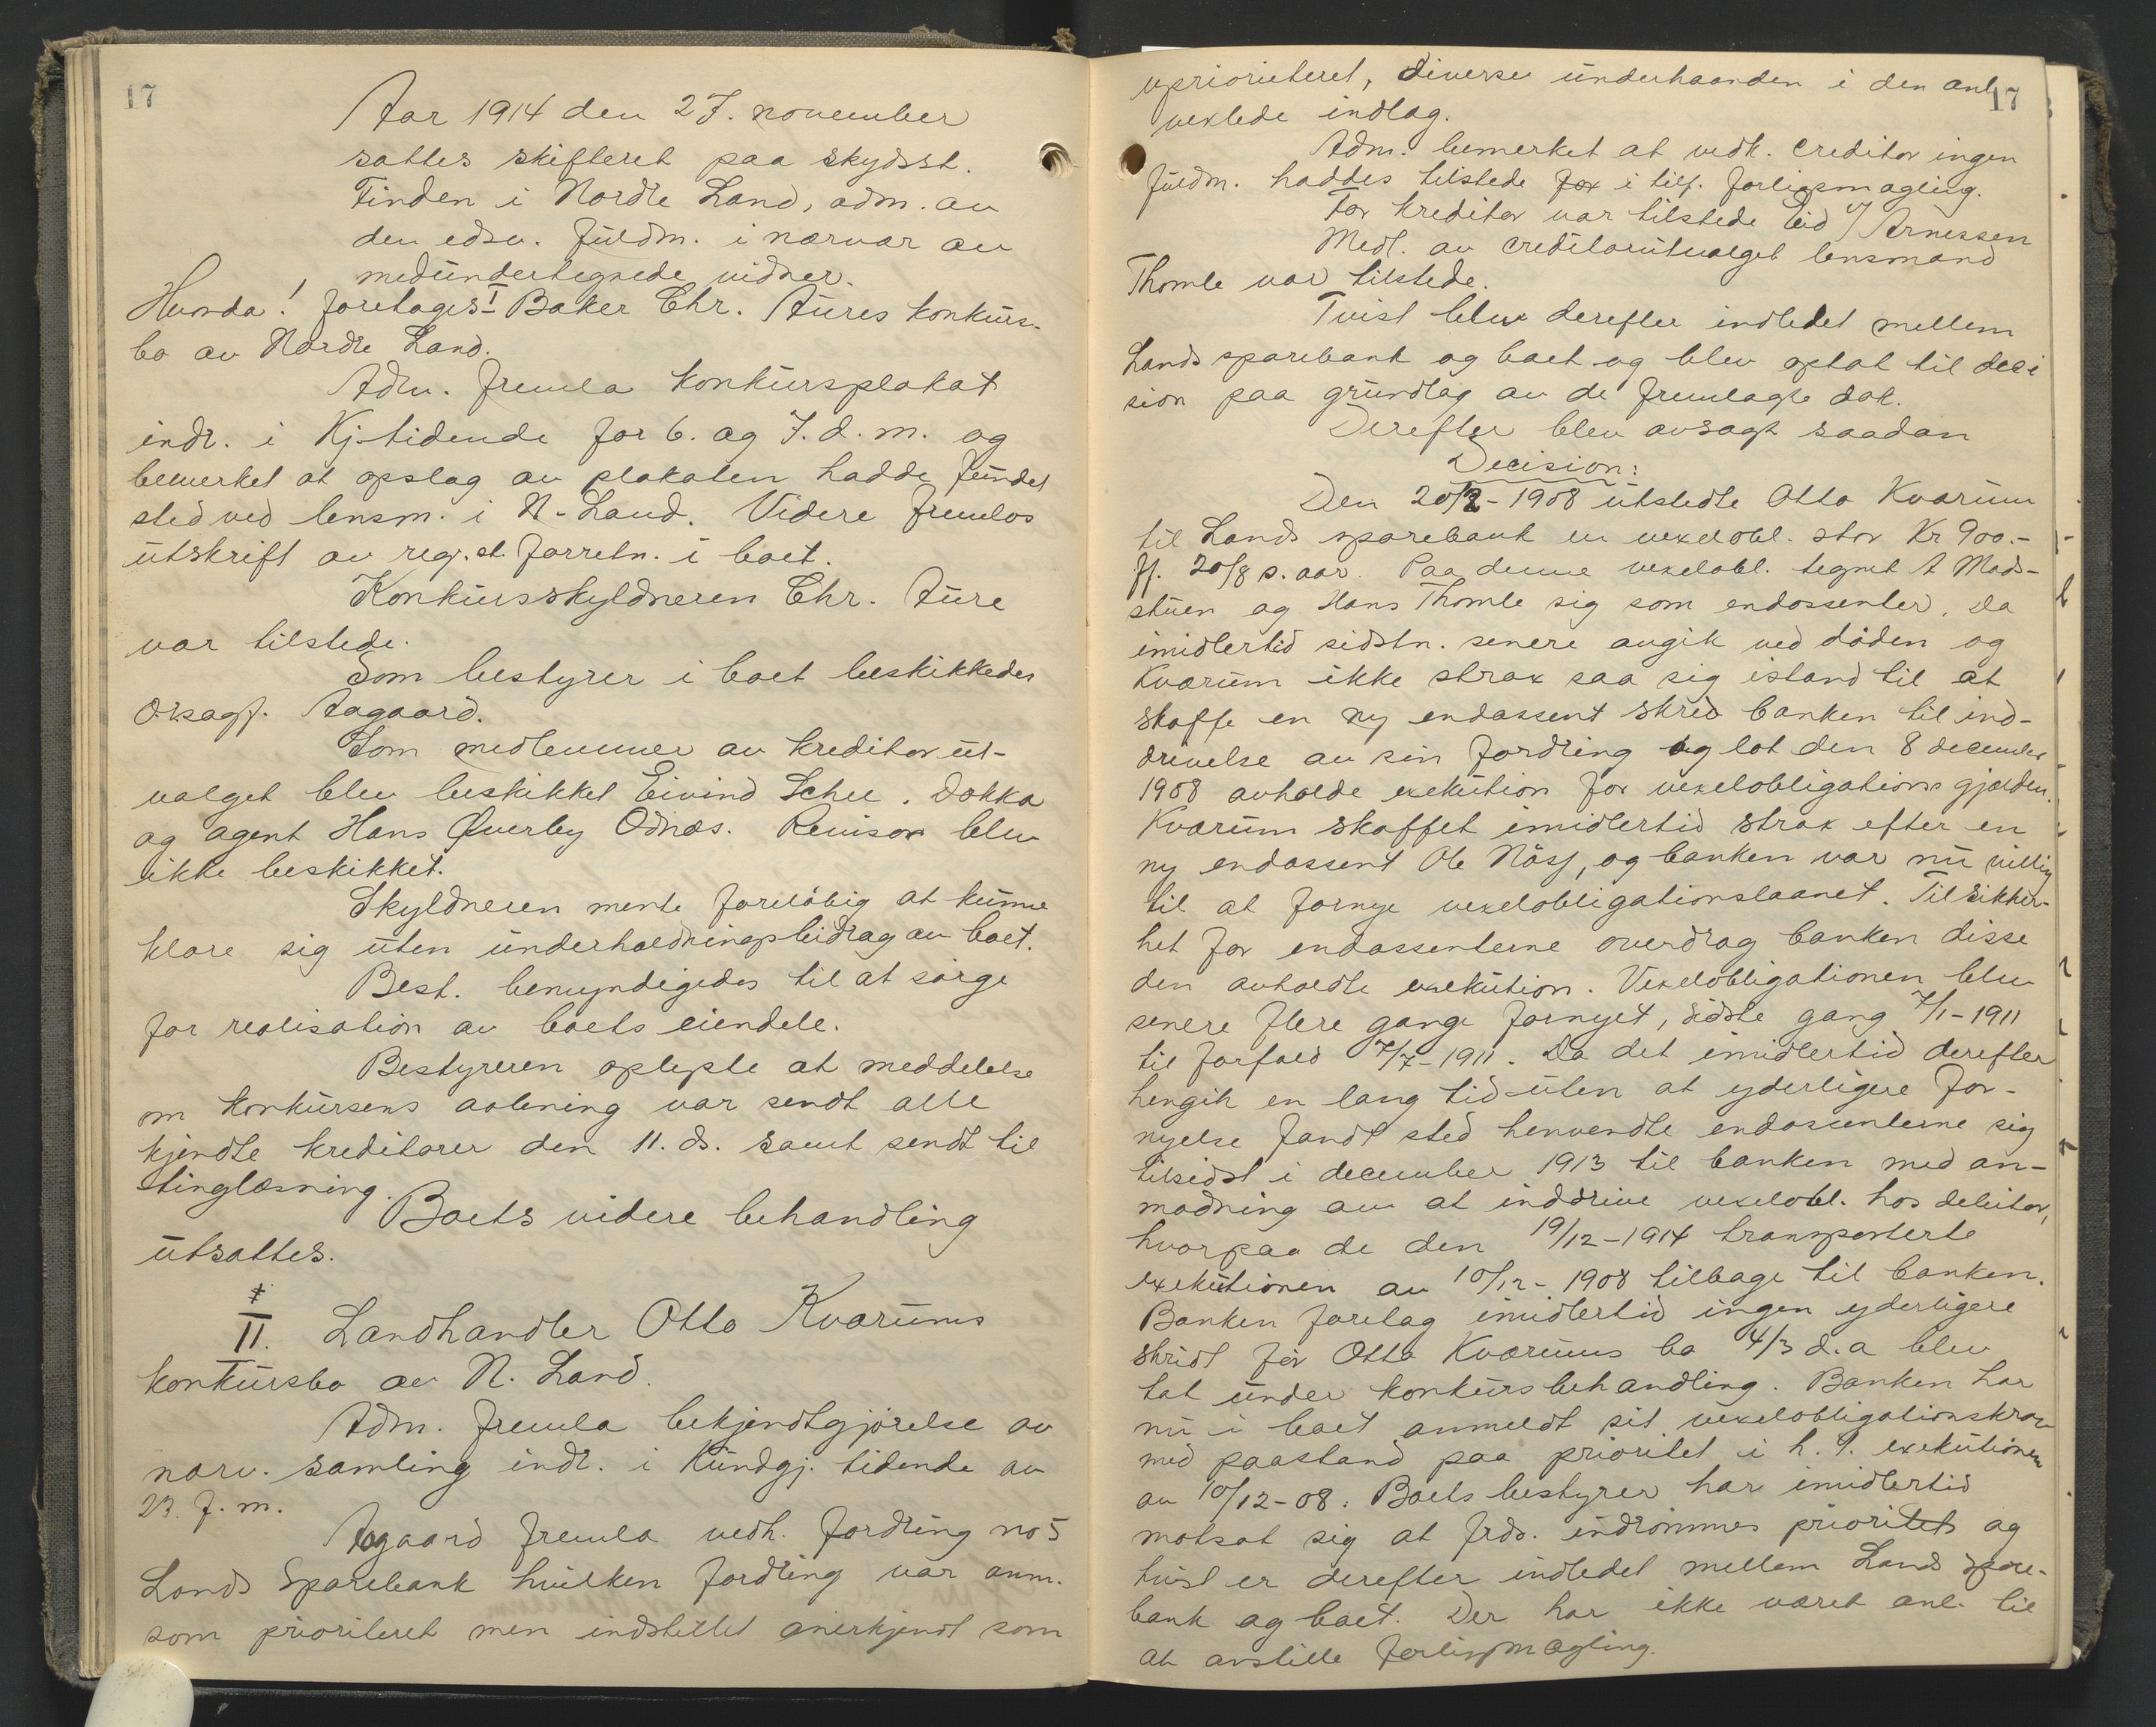 17
Aar 1914 den 27. november
sattes skifteret paa skydsst.
Finden i Nordre Land, adm. av
den edsv. fuldm. i nærvær av
medundertegnede vidner.
Hvorda! foretages I Baker Chr. Aures konkurs-
bo av Nordre Land.
Adm. fremla konkursplakat
indr. i Kj-tidende for 6. og 7. d. m. og
bemerket at opslag av plakaten hadde fundet
sted ved lensm. i N-Land. Videre fremlos
utskrift av reg. st. forretn. i boet.
Konkursskyldneren Chr. Aure
var tilstede.
Som bestyrer i boet beskikkedes
O.r.sagf. Aagaard.
Som medlemmer av kreditorut-
valget blev beskikket Eivind Schee. Dokka
og agent Hans Øverby Odnæs. Revisor blev
ikke beskikket.
Skyldneren mente foreløbig at kunne
klare sig uten underholdningsbidrag av boet.
Best. bemyndigedes til at sørge
for realisation av boets eiendele.
Bestyreren oplyste at meddelelse
om konkursens aabning var sendt alle
kjendte kreditorer den 11. ds. samt sendt til
tinglæsning.
Boets videre behandling
utsattes.
II. Landhandler Otto Kværums
konkursbo av N. Land.
Adm. fremla bekjendtgjørelse av
nærv. samling indr. i Kundgj. tidende av
23. f. m.
Aagaard fremla vedk. fordring no 5
Lands Sparebank hvilken fordring var anm.
som prioriteret men indstillet anerkjendt som
17
uprioriteret, diverse underhaanden i den anl.
vexlede indlag.
Adm. bemerket at vedk. creditor ingen
fuldm. haddes tilstede for i tilf. forligsmægling.
For kreditor var tilstede Eid v/ Arnesen
Medl. av creditorutvalget lensmand
Thomle var tilstede.
Tvist blev derefter indledet mellem
Lands sparebank og boet og blev optat til deci
sion paa grundlag av de fremlagte dok.
Derefter blev avsagt saadan
Decision:
Den 20/2-1908 utstedte Otto Kværum
til Lands sparebank en vexelobl. stor Kr 900.-
ff. 20/8 s. aar. Paa denne vexelobl. tegnet A Mads-
stuen og Hans Thomle sig som endossenter. Da
imidlertid sidstn. senere avgik ved døden og
Kværum ikke strax saa sig istand til at
skaffe en ny endossent skred banken til ind-
drivelse av sin fordring og lot den 8 december
1908 avholde exekution for vexelobligations gjælden.
Kværum skaffet imidlertid strax efter en
ny endossent Ole Nøss, og banken var nu villig
til at fornye vexelobligationslaanet. Til sikker-
het for endossenterne overdrog banken disse
den avholdte exekution. Vexelobligationen blev
senere flere gange fornyet, sidste gang 7/1-1911
til forfald 7/7-1911. Da det imidlertid derefter
hengik en lang tid uten at yderligere for-
nyelse fandt sted henvendte endossenterne sig
tilsidst i december 1913 til banken med an-
modning om at inddrive vexelobl. hos debitor,
hvorpaa de den 19/12-1914 transporterte
exekutionen av 10/12-1908 tilbage til banken.
Banken foretog imidlertid ingen yderligere
skridt før Otto Kværums bo 4/3 d. a blev
tat under konkursbehandling. Banken har
nu i boet anmeldt sit vexelobligationskrav
med paastand paa prioritet i h. t. exekutionen
av 10/12-08. Boets bestyrer har imidlertid
motsat sig at frds. indrømmes prioritet og
tvist er derefter indledet mellem Lands spare-
bank og boet. Der har ikke været anl. til
at anstille forligsmægling.